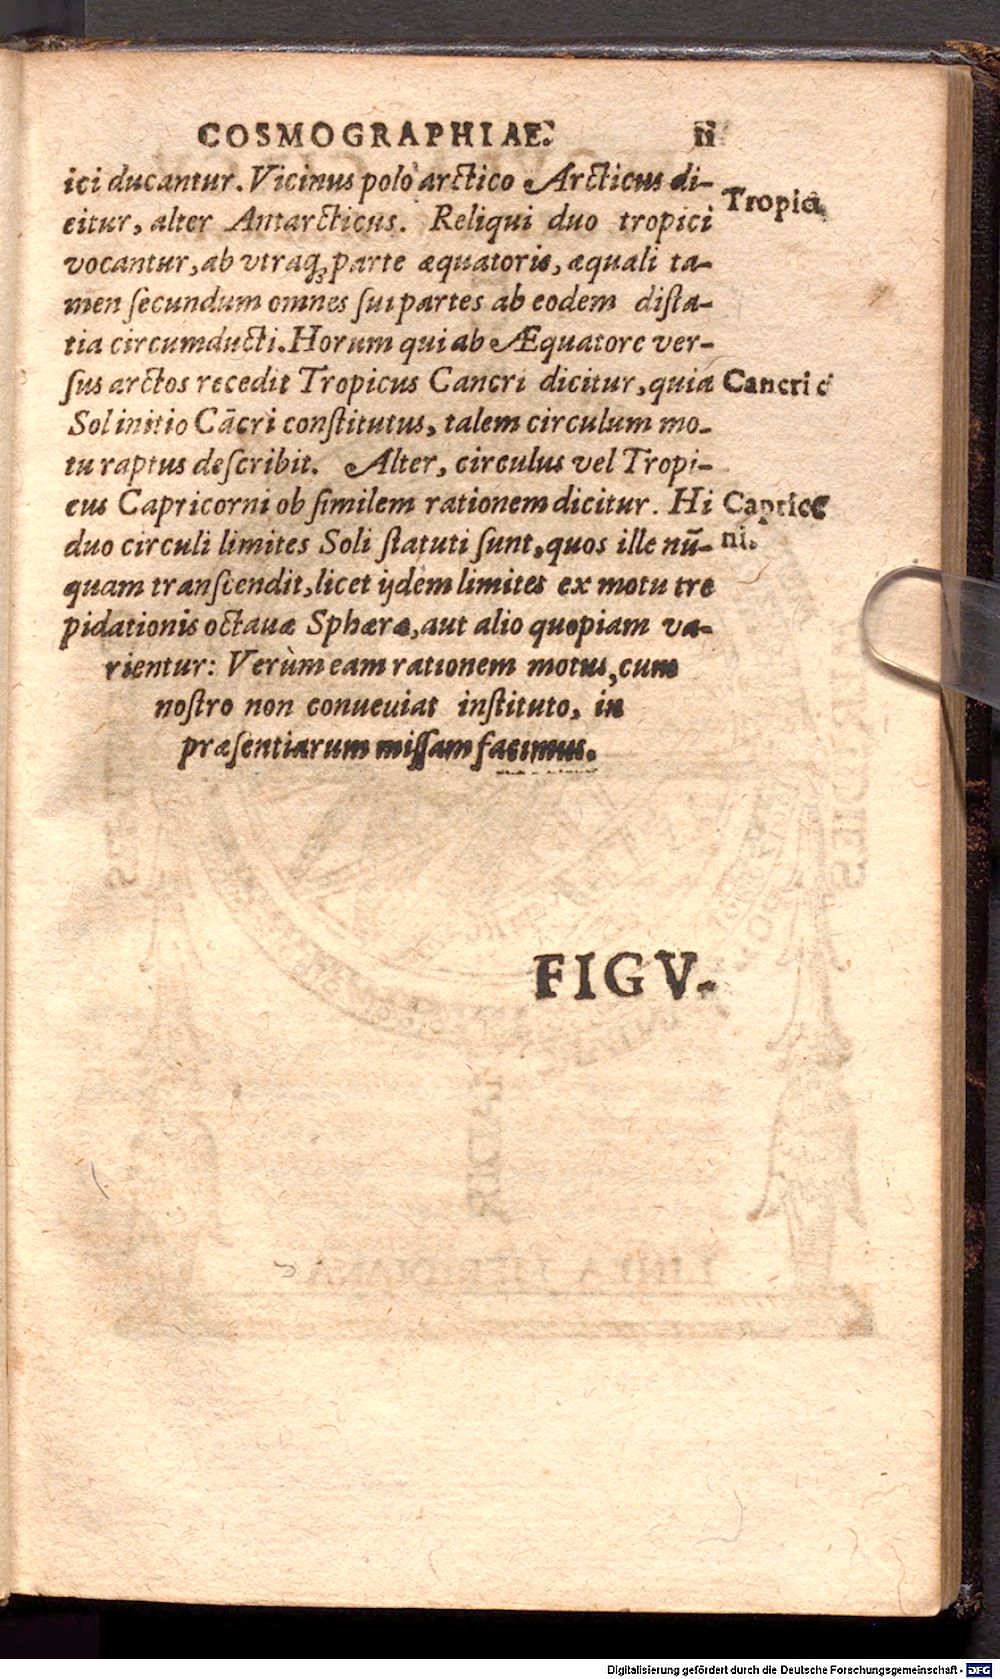 COSMOGRAPHIAE. 11
ici ducantur. Vicinus polo arctico Arcticus di-
citur, alter Antarcticus. Reliqui duo tropici
Tropici
vocantur, ab vtraq; parte æquatoris, æquali ta-
men secundum omnes sui partes ab eodem dista-
tia circumducti. Horum qui ab Æquatore ver-
sus arctos recedit Tropicus Cancri dicitur, quia
Cancri &
Sol initio Cācri constitutus, talem circulum mo-
tu raptus describit. Alter, circulus vel Tropi-
cus Capricorni ob similem rationem dicitur. Hi
duo circuli limites Soli statuti sunt, quos ille nū-
ni.
quam transcendit, licet ijdem limites ex motu tre
pidationis octauæ Sphæræ, aut alio quopiam va-
rientur: Verùm eam rationem motus, cum
nostro non conueuiat instituto, in
præsentiarum missam facimus.
FIGV-
LINEA MERIDIANA
Digitalisierung gefördert durch die Deutsche Forschungsgemeinschaft - DFG